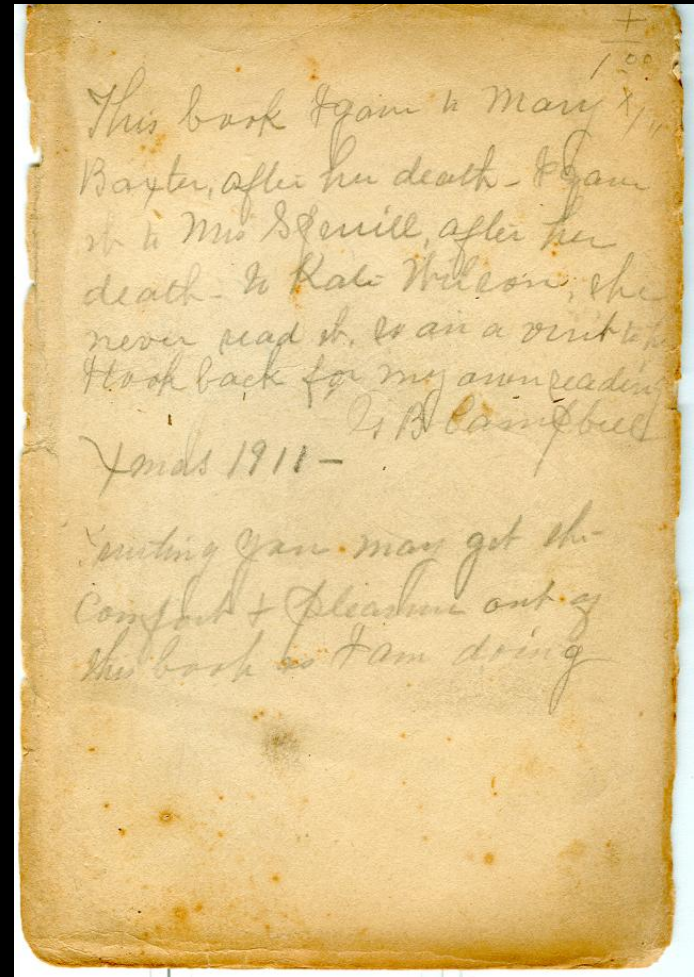 1.00
This book I gave to Mary
Baxter, after her death - I gave
it to Mrs after her
death - to Kate Wilson, she
never read it, so on a visit to
I took back for my own reading
B Campbell
Xmas 1911 -
Trusting you may get the
Comfort + pleasure out of
this book as I am doing